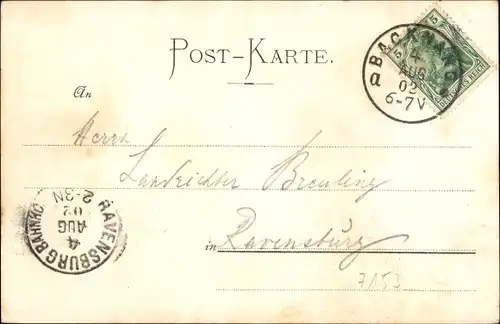 POST-KARTE.
BACKNANG
4
AUG
02
6-7V
a
5
5
DEUTSCHES REICH
An
Herrn
Landrichter Breuling
in Ravensburg
RAVENSBURG BAHNHOF
4
AUG
02
2-3N
7153